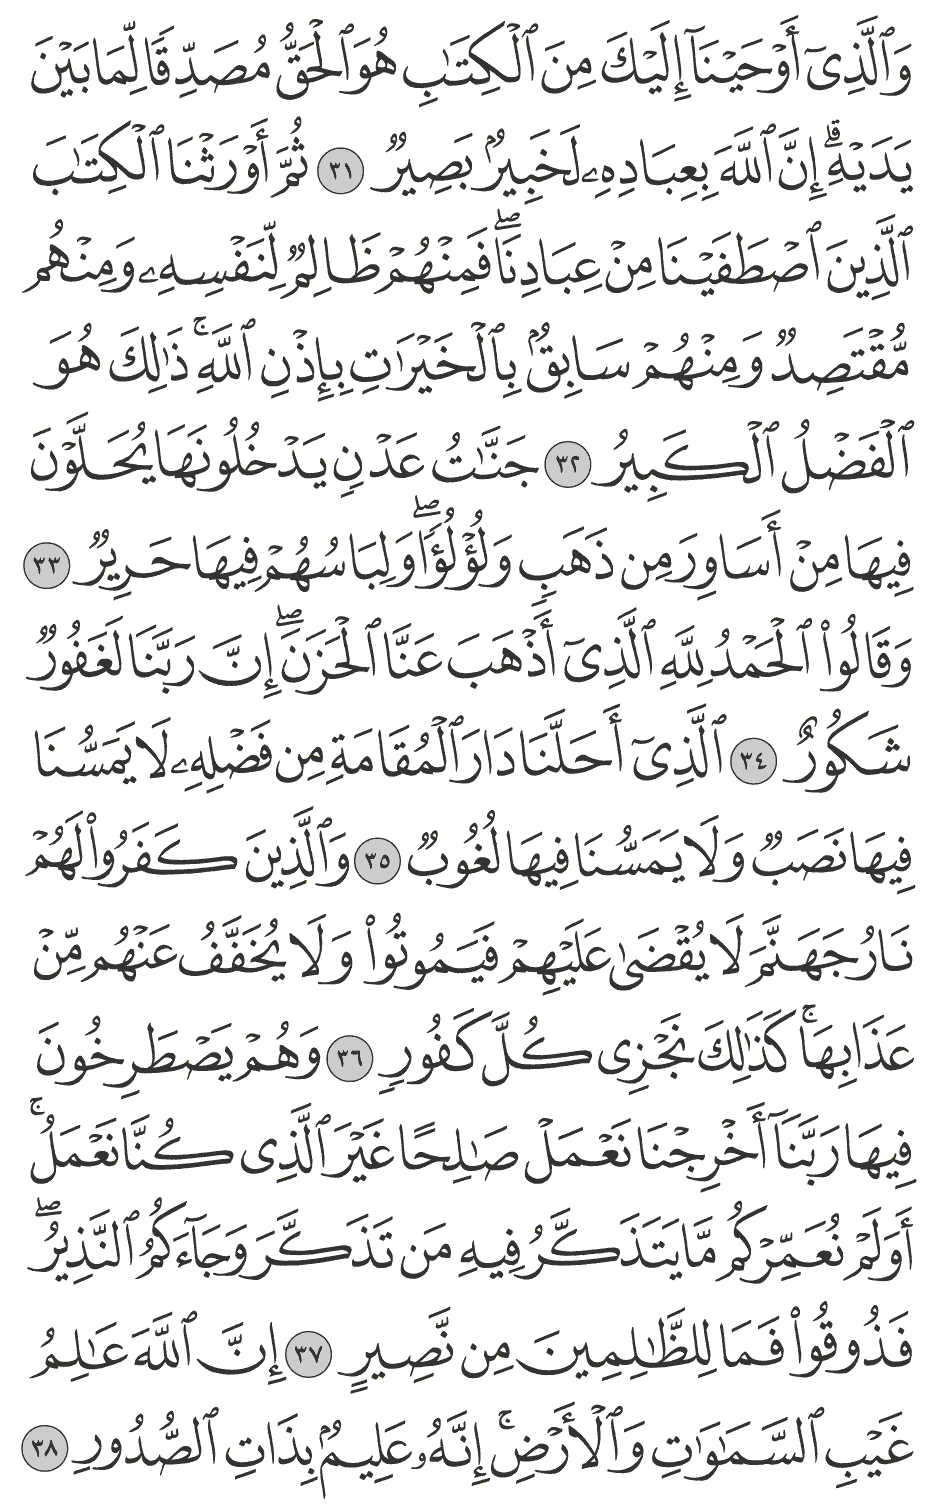 وَٱلَّذِىٓ أَوْحَيْنَآ إِلَيْكَ مِنَ ٱلْكِتَٰبِ هُوَ ٱلْحَقُّ مُصَدِّقًا لِّمَا بَيْنَ
يَدَيْهِ ۗ إِنَّ ٱللَّهَ بِعِبَادِهِۦ لَخَبِيرٌۢ بَصِيرٌ ٣١ ثُمَّ أَوْرَثْنَا ٱلْكِتَٰبَ
ٱلَّذِينَ ٱصْطَفَيْنَا مِنْ عِبَادِنَا ۖ فَمِنْهُمْ ظَالِمٌ لِّنَفْسِهِۦ وَمِنْهُم
مُّقْتَصِدٌ وَمِنْهُمْ سَابِقٌۢ بِٱلْخَيْرَٰتِ بِإِذْنِ ٱللَّهِ ۚ ذَٰلِكَ هُوَ
ٱلْفَضْلُ ٱلْكَبِيرُ ٣٢ جَنَّٰتُ عَدْنٍ يَدْخُلُونَهَا يُحَلَّوْنَ
فِيهَا مِنْ أَسَاوِرَ مِن ذَهَبٍ وَلُؤْلُؤًا ۖ وَلِبَاسُهُمْ فِيهَا حَرِيرٌ ٣٣
وَقَالُوا۟ ٱلْحَمْدُ لِلَّهِ ٱلَّذِىٓ أَذْهَبَ عَنَّا ٱلْحَزَنَ ۖ إِنَّ رَبَّنَا لَغَفُورٌ
شَكُورٌ ٣٤ ٱلَّذِىٓ أَحَلَّنَا دَارَ ٱلْمُقَامَةِ مِن فَضْلِهِۦ لَا يَمَسُّنَا
فِيهَا نَصَبٌ وَلَا يَمَسُّنَا فِيهَا لُغُوبٌ ٣٥ وَٱلَّذِينَ كَفَرُوا۟ لَهُمْ
نَارُ جَهَنَّمَ لَا يُقْضَىٰ عَلَيْهِمْ فَيَمُوتُوا۟ وَلَا يُخَفَّفُ عَنْهُم مِّنْ
عَذَابِهَا ۚ كَذَٰلِكَ نَجْزِى كُلَّ كَفُورٍ ٣٦ وَهُمْ يَصْطَرِخُونَ
فِيهَا رَبَّنَآ أَخْرِجْنَا نَعْمَلْ صَٰلِحًا غَيْرَ ٱلَّذِى كُنَّا نَعْمَلُ ۚ
أَوَلَمْ نُعَمِّرْكُم مَّا يَتَذَكَّرُ فِيهِ مَن تَذَكَّرَ وَجَآءَكُمُ ٱلنَّذِيرُ ۖ
فَذُوقُوا۟ فَمَا لِلظَّٰلِمِينَ مِن نَّصِيرٍ ٣٧ إِنَّ ٱللَّهَ عَٰلِمُ
غَيْبِ ٱلسَّمَٰوَٰتِ وَٱلْأَرْضِ ۚ إِنَّهُۥ عَلِيمٌۢ بِذَاتِ ٱلصُّدُورِ ٣٨